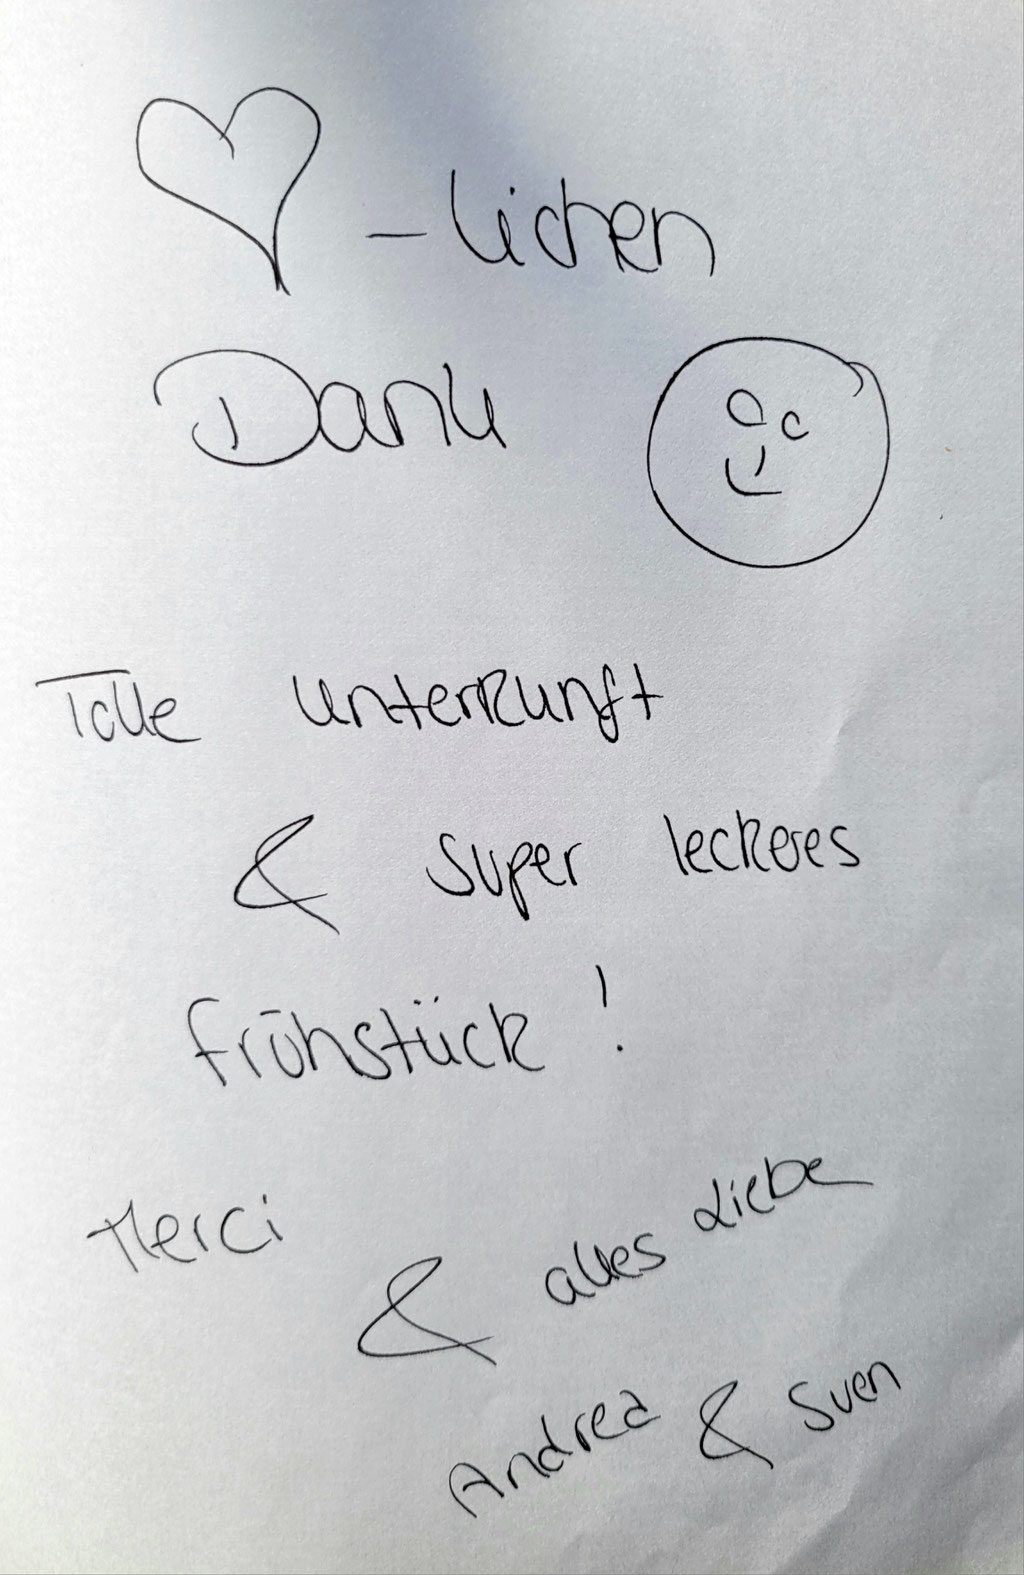 ♡-lichen
Dank
Tolle Unterkunft
& super leckeres
Frühstück!
Merci
& alles Liebe
Andrea & Sven